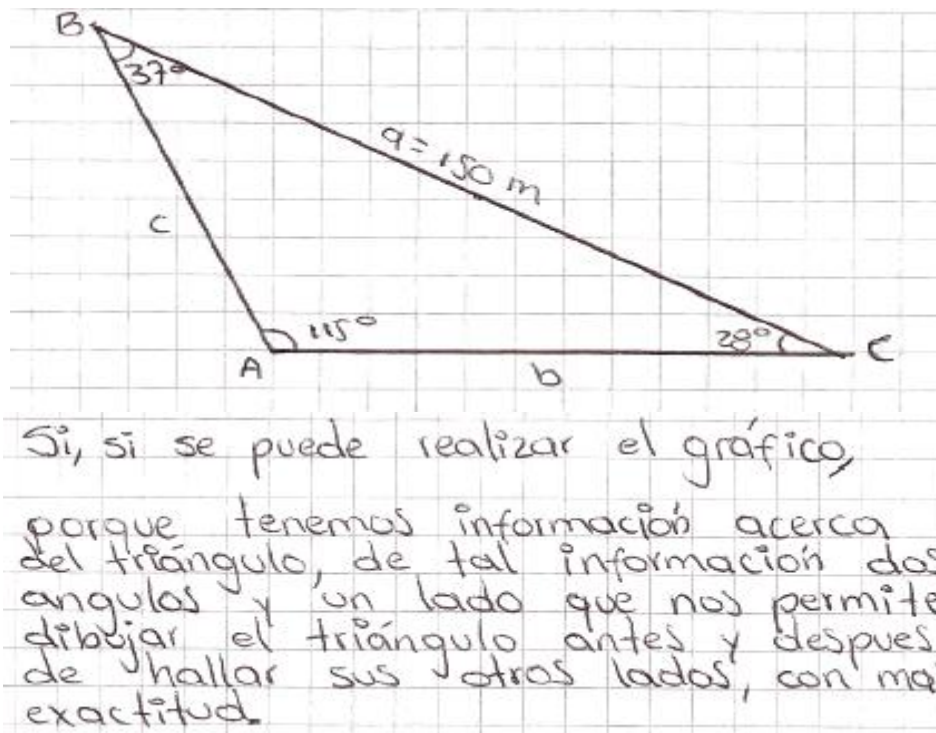 B
37°
a = 150 m
c
115°
28°
C
A
b
Si, si se puede realizar el gráfico,
porque tenemos información acerca
del triángulo, de tal información dos
angulos y un lado que nos permite
dibujar el triángulo antes y despues
de hallar sus otros lados, con ma
exactitud.